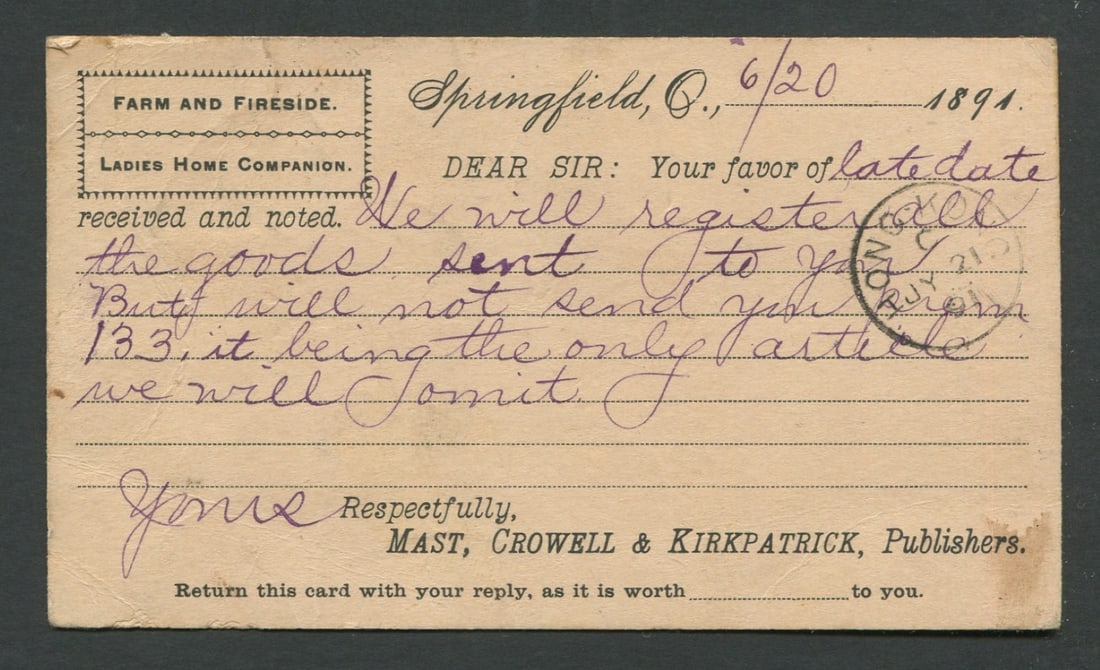 FARM AND FIRESIDE.
LADIES HOME COMPANION.
Springfield, O., 6/20 1891.
DEAR SIR: Your favor of late date
received and noted. We will register all
the goods sent to you
But will not send you Prem
133, it being the only article
we will omit.
Yours Respectfully,
MAST, CROWELL & KIRKPATRICK, Publishers.
Return this card with your reply, as it is worth to you.
HONG-KONG
C
JY 21
91